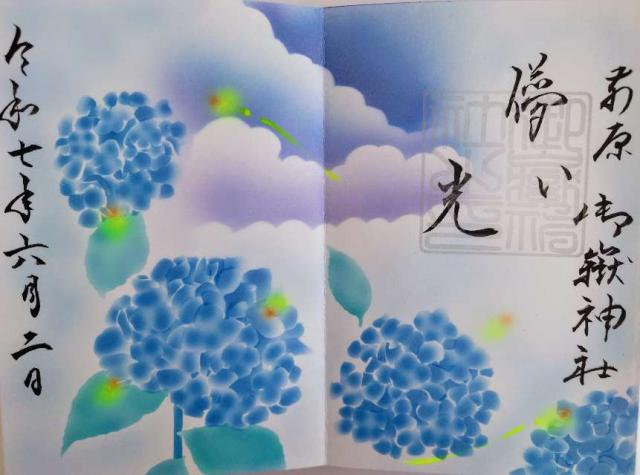 前原 御嶽神社
儚い
光
令和七年六月二日